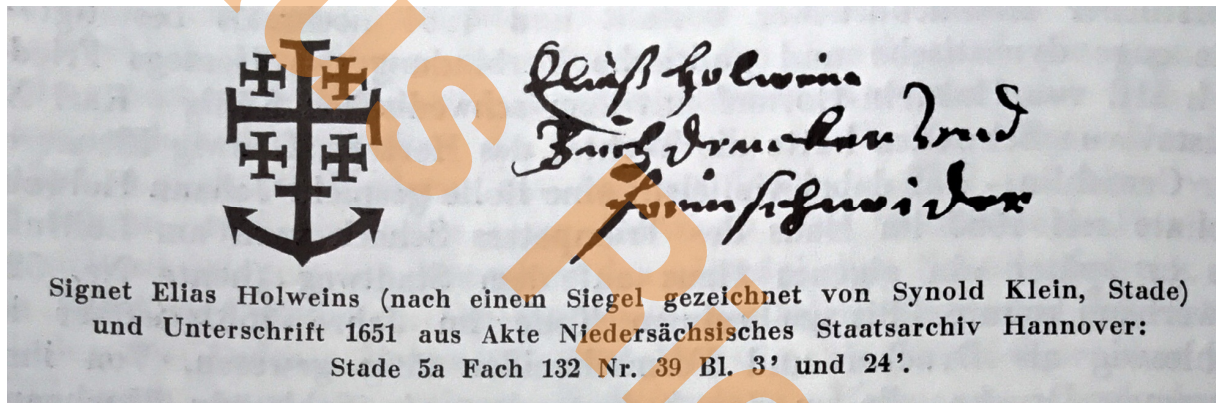 Eliaß Holwein
Buchdrucker Vnd
Formschneider
Signet Elias Holweins (nach einem Siegel gezeichnet von Synold Klein, Stade)
und Unterschrift 1651 aus Akte Niedersächsisches Staatsarchiv Hannover:
Stade 5a Fach 132 Nr. 39 Bl. 3’ und 24’.